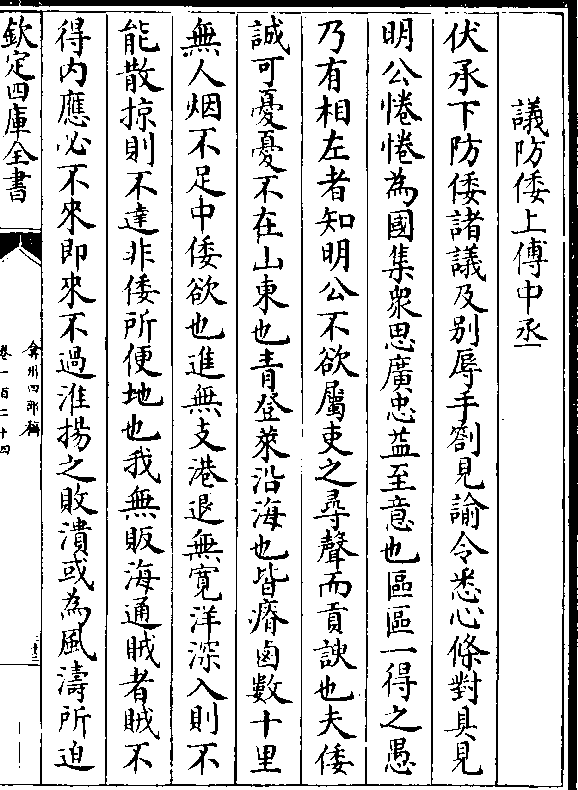 議防倭上傅中丞
伏承下防倭諸議及别辱手劄見諭令悉心條對具見
明公惓惓為國集衆思廣忠益至意也區區一得之愚
乃有相左者知明公不欲屬吏之尋聲而貢諛也夫倭
誠可憂憂不在山東也青登萊沿海也皆瘠鹵數十里
無人烟不足中倭欲也進無支港退無寛洋深入則不
能散掠則不達非倭所便地也我無販海通賊者賊不
得内應必不來即來不過淮揚之敗潰或為風濤所迫
欽定四庫全書
弇州四部稿
卷一百二十四